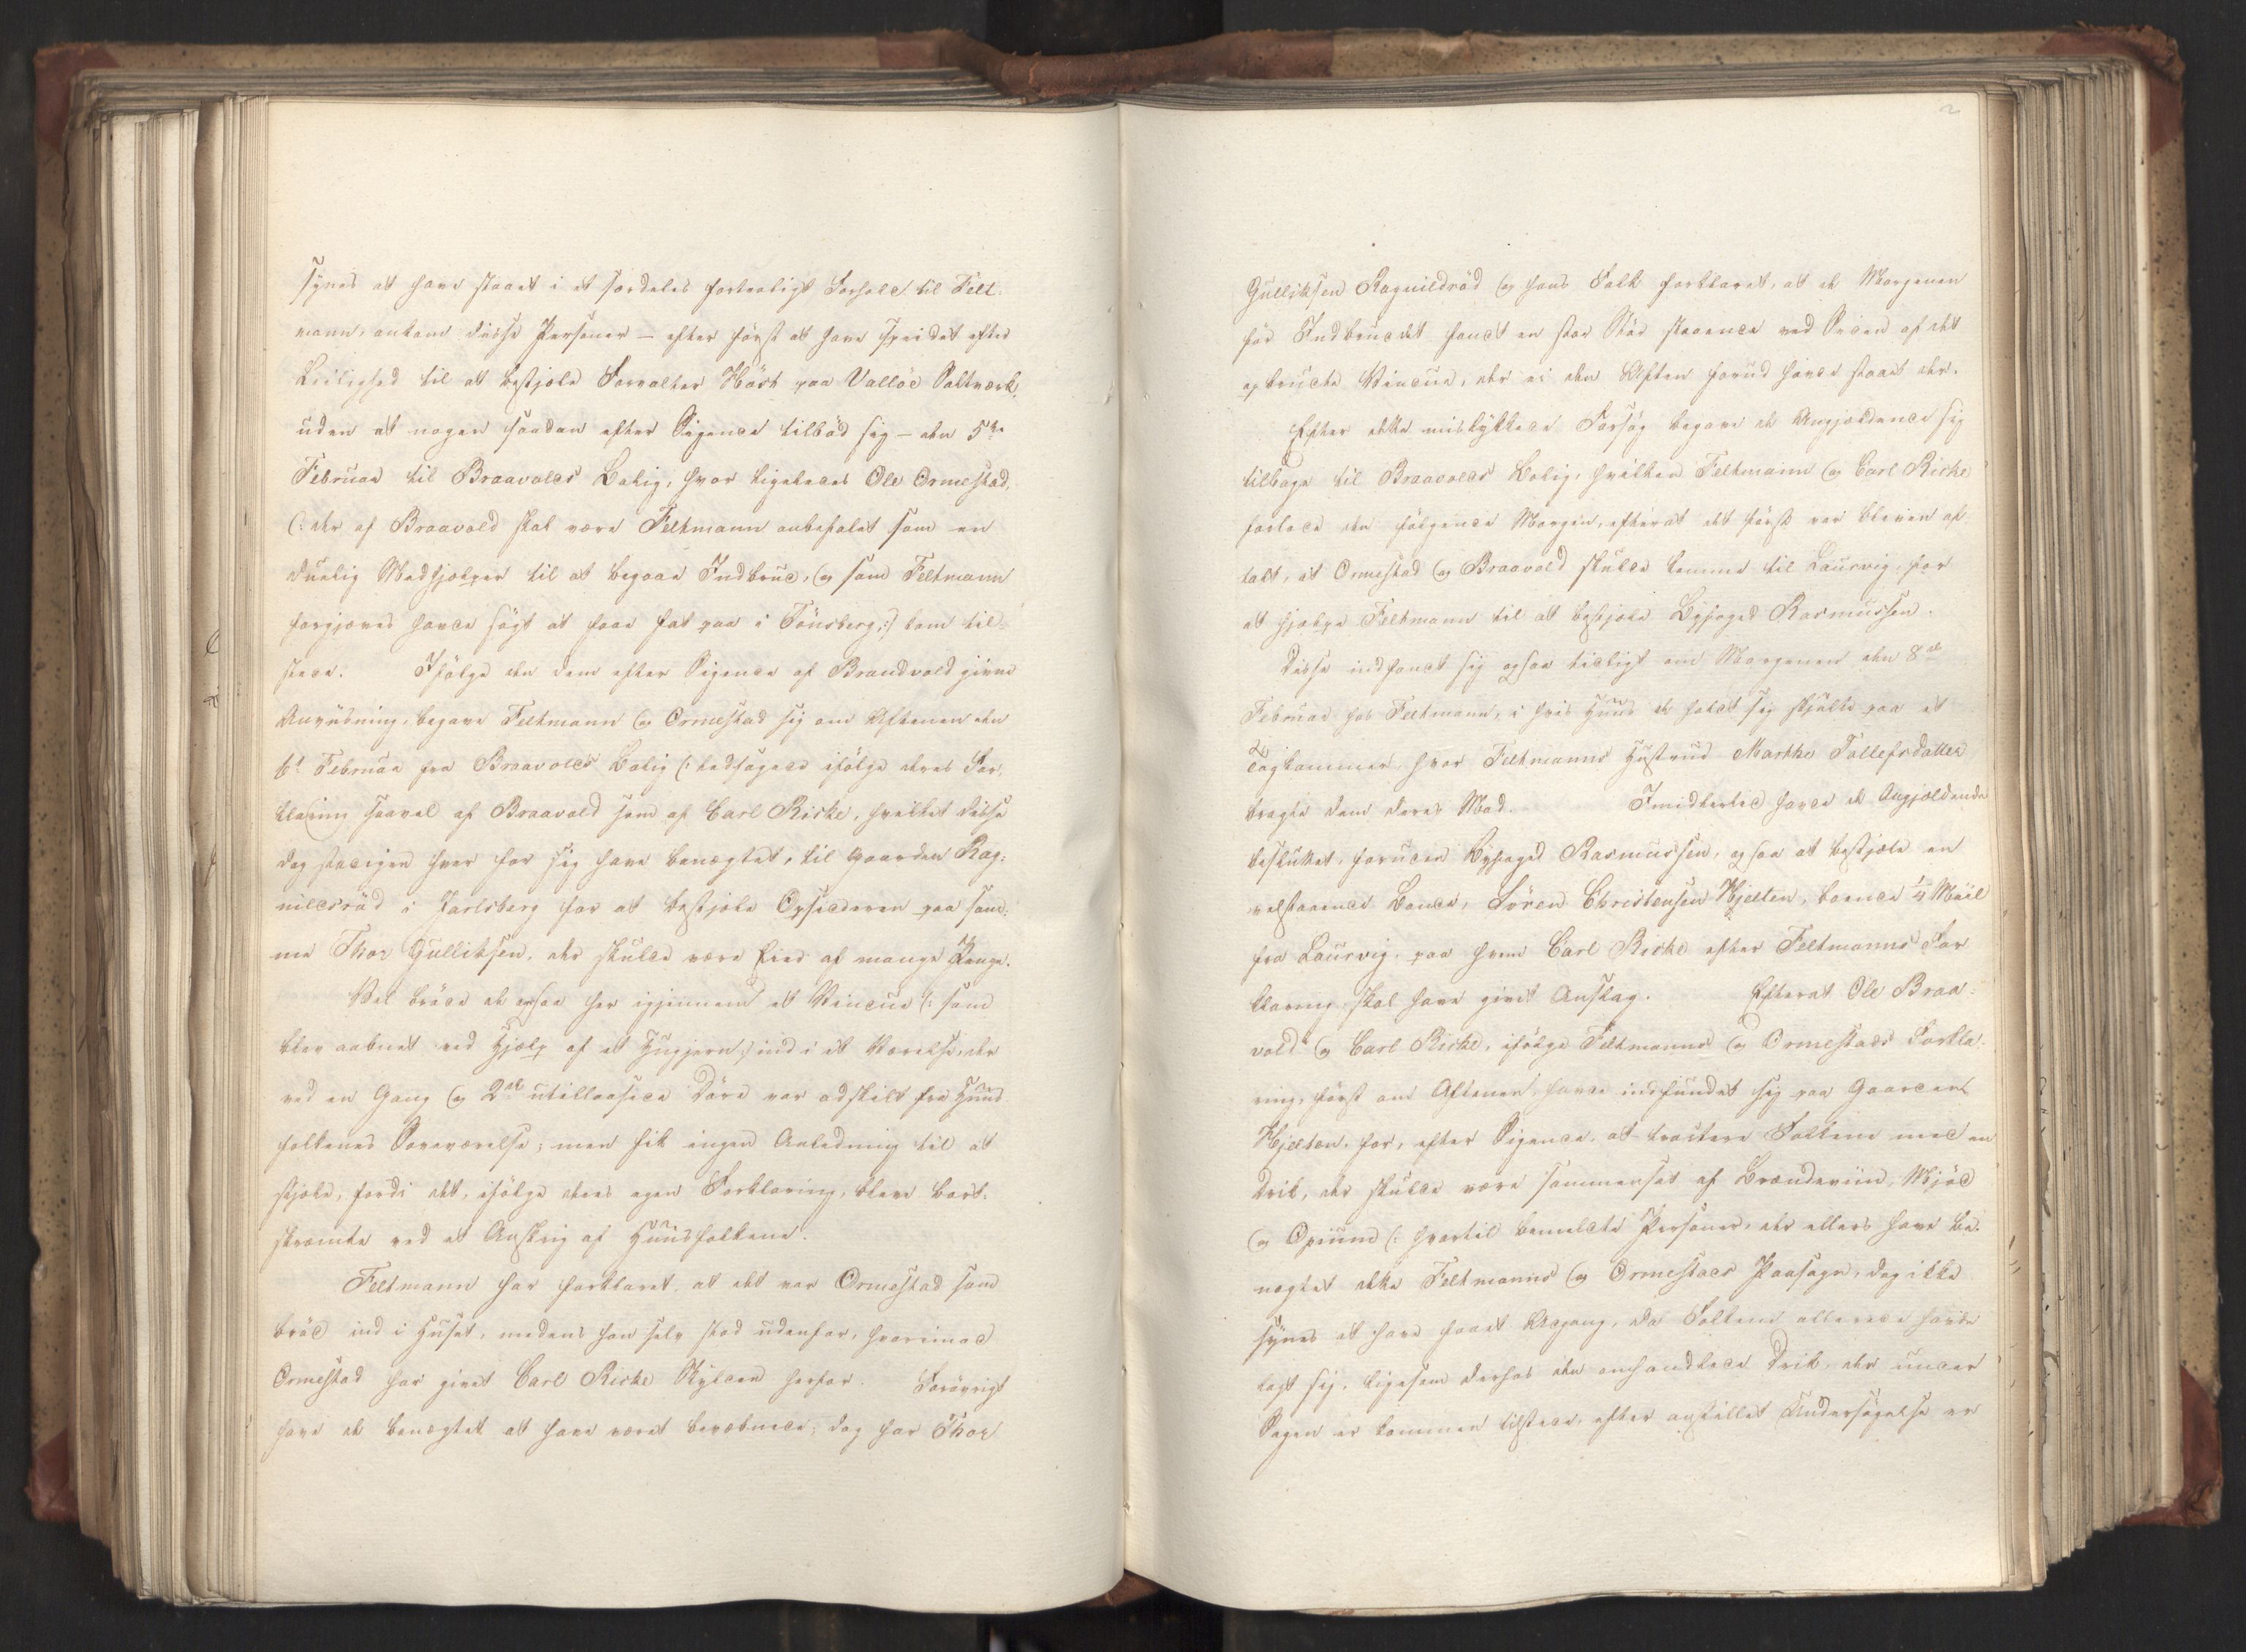 synes at have staaet i et særdeles fortroligt Forhold til Felt-
mann, ankom disse Personer – efter først at have speidet efter
Leilighed til at bestjæle Forvalter Höst paa Vallöe Saltværk,
uden at nogen saadan efter Sigende tilböd sig – den 5te
Februar til Braavolds Bolig, hvor ligeledes Ole Ormestad,
(: der af Braavold skal være Feltmann anbefalet som en
duelig Medhjælper til at begaae Indbrud, og som Feltmann
forgjæves havde sögt at faae fat paa i Tönsberg :) kom til-
stede. Ifölge den dem efter Sigende af Brandvold givne
Anviisning, begave Feltmann og Ormestad sig om Aftenen den
6te Februar fra Braavolds Bolig (: ledsagede ifölge deres For-
klaring saavel af Braavold som af Carl Riske, hvilket disse
dog stedigen hver for sig have benægtet, til Gaarden Rag-
nildsröd i Jarlsberg for at bestjæle Opsidderen paa sam-
me Thor Gulliksen, der skulde være Eier af mange Penge.
Vel bröde de ogsaa her igjennem et Vindue (: som
blev aabnet ved Hjælp af et Huggjern :) ind i et Værelse, der
ved en Gang og 2de utillaasede Döre var adskilt fra Huus-
folkenes Soveværelse; men fik ingen Anledning til at
stjæle, fordi det, ifölge deres egen Forklaring, bleve bort-
skræmte ved et Anskrig af Huusfolkene.
Feltmann har forklaret, at det var Ormestad som
bröd ind i Huset, medens han selv stod udenfor, hvorimod
Ormestad har givet Carl Riske Skylden herfor. Forövrigt
have de benægtet at have været bevæbnede; dog har Thor
2
Gulliksen Ragnildröd og hans Folk forklaret, at de Morgenen
för Indbruddet fandt en stor Stör staaende ved Siden af det
opbrudte Vindue, der ei den Aften forud havde staaet der.
Efter dette mislykkede Forsög begave de Angjældende sig
tilbage til Braavolds Bolig, hvilken Feltmann og Carl Riske
forlode den fölgende Morgen, efterat det först var bleven af-
talt, at Ormestad og Braavold skulde komme til Laurvig, for
at hjælpe Feltmann til at bestjæle Byfoged Rasmussen.
Disse indfandt sig ogsaa tidligt om Morgenen den 8de
Februar hos Feltmann, i hvis Huus de holdt sig skjulte paa et
Tagkammer hvor Feltmanns Hustrue Marthe Tollefsdatter
bragte dem deres Mad. Imidlertid havde de Angjældende
besluttet, foruden Byfoged Rasmussen, ogsaa at bestjæle en
velstaaende Bonde, Sören Christensen Hjelten, boende 1/4 Miil
fra Laurvig, paa hvem Carl Riske efter Feltmanns For-
klaring skal have givet Anslag. Efterat Ole Braa-
vold og Carl Riske, ifölge Feltmanns og Ormestads Forkla-
ring, först om Aftenen havde indfundet sig paa Gaarden
Hjelten, for, efter Sigende, at tractere Folkene med en
Drik, der skulde være sammensat af Brændeviin, Mjöd
og Opium (: hvortil bemeldte Personer, der ellers have be-
nægtet dette Feltmanns og Ormestads Paasagn, dog ikke
synes at have faaet Adgang, da Folkene allerede havde
lagt sig, ligesom derhos den omhandlede Drik, der under
Sagen er kommen tilstede, efter anstillet Undersögelse er